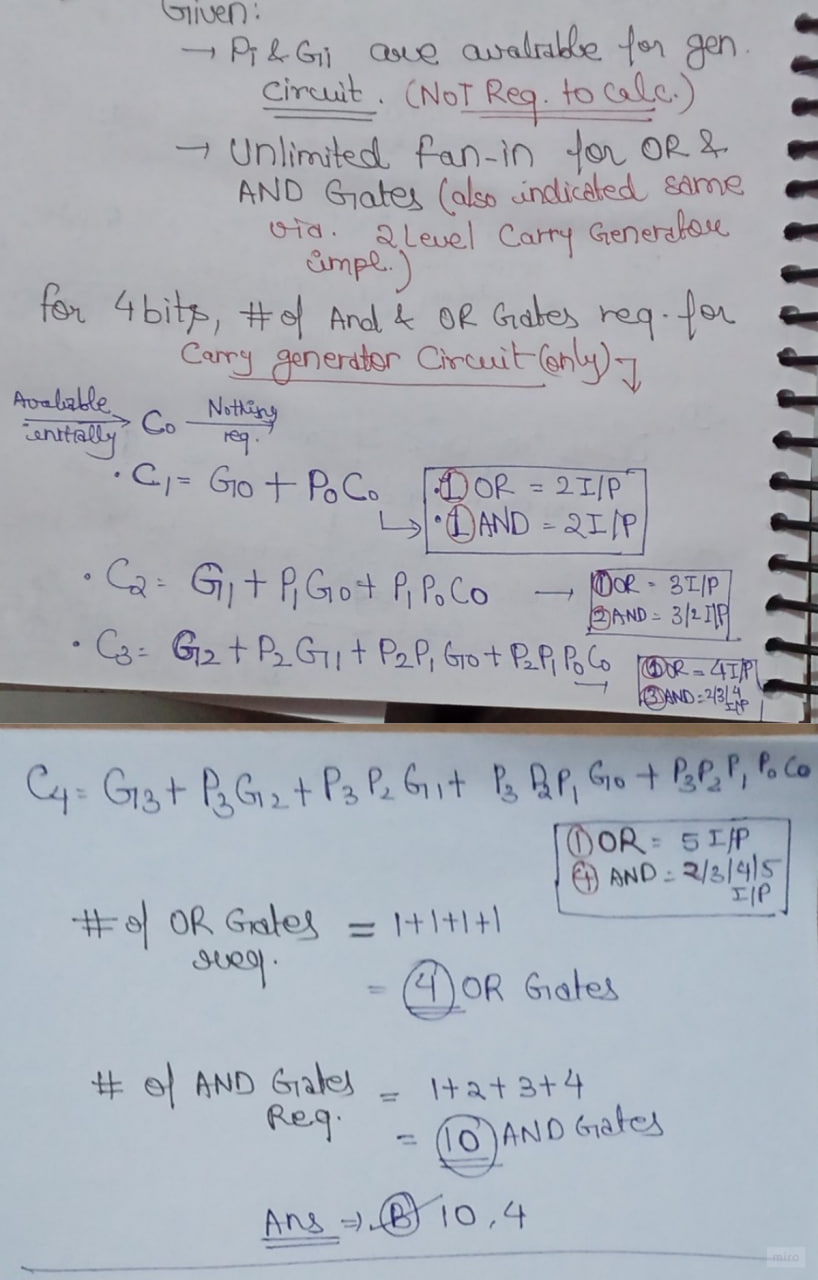 Given:
→ Pi & Gi are avaliable for gen.
circuit. (NOT Req. to calc.)
→ Unlimited fan-in for OR &
AND Gates (also indicated same
via. 2 Level Carry Generator
impl.)
for 4 bits, # of And & OR Gates req. for
Carry generator Circuit (only) ↴
Avaliable initially → C0 Nothing req.
• C1 = G0 + P0C0
• ① OR = 2 I/P
• ① AND = 2 I/P
• C2 = G1 + P1G0 + P1P0C0 →
① OR = 3 I/P
② AND = 3/2 I/P
• C3 = G2 + P2G1 + P2P1G0 + P2P1P0C0 →
① OR = 4 I/P
③ AND = 2/3/4 I/P
C4 = G3 + P3G2 + P3P2G1 + P3P2P1G0 + P3P2P1P0C0
① OR = 5 I/P
④ AND = 2/3/4/5
I/P
# of OR Gates = 1+1+1+1
req.
= ④ OR Gates
# of AND Gates = 1+2+3+4
Req.
= ⑩ AND Gates
Ans ⇒ Ⓑ 10, 4
miro